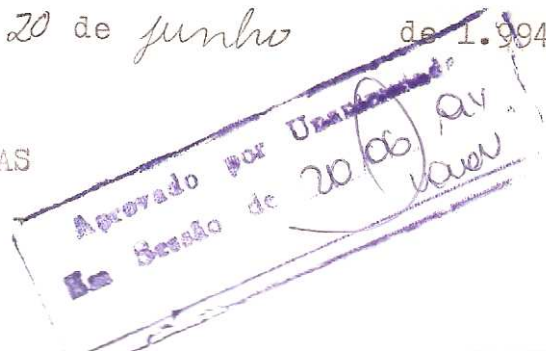 20 de junho de 1.994
AS
Aprovado por Unanimidade
Em Sessão de 20/06/94